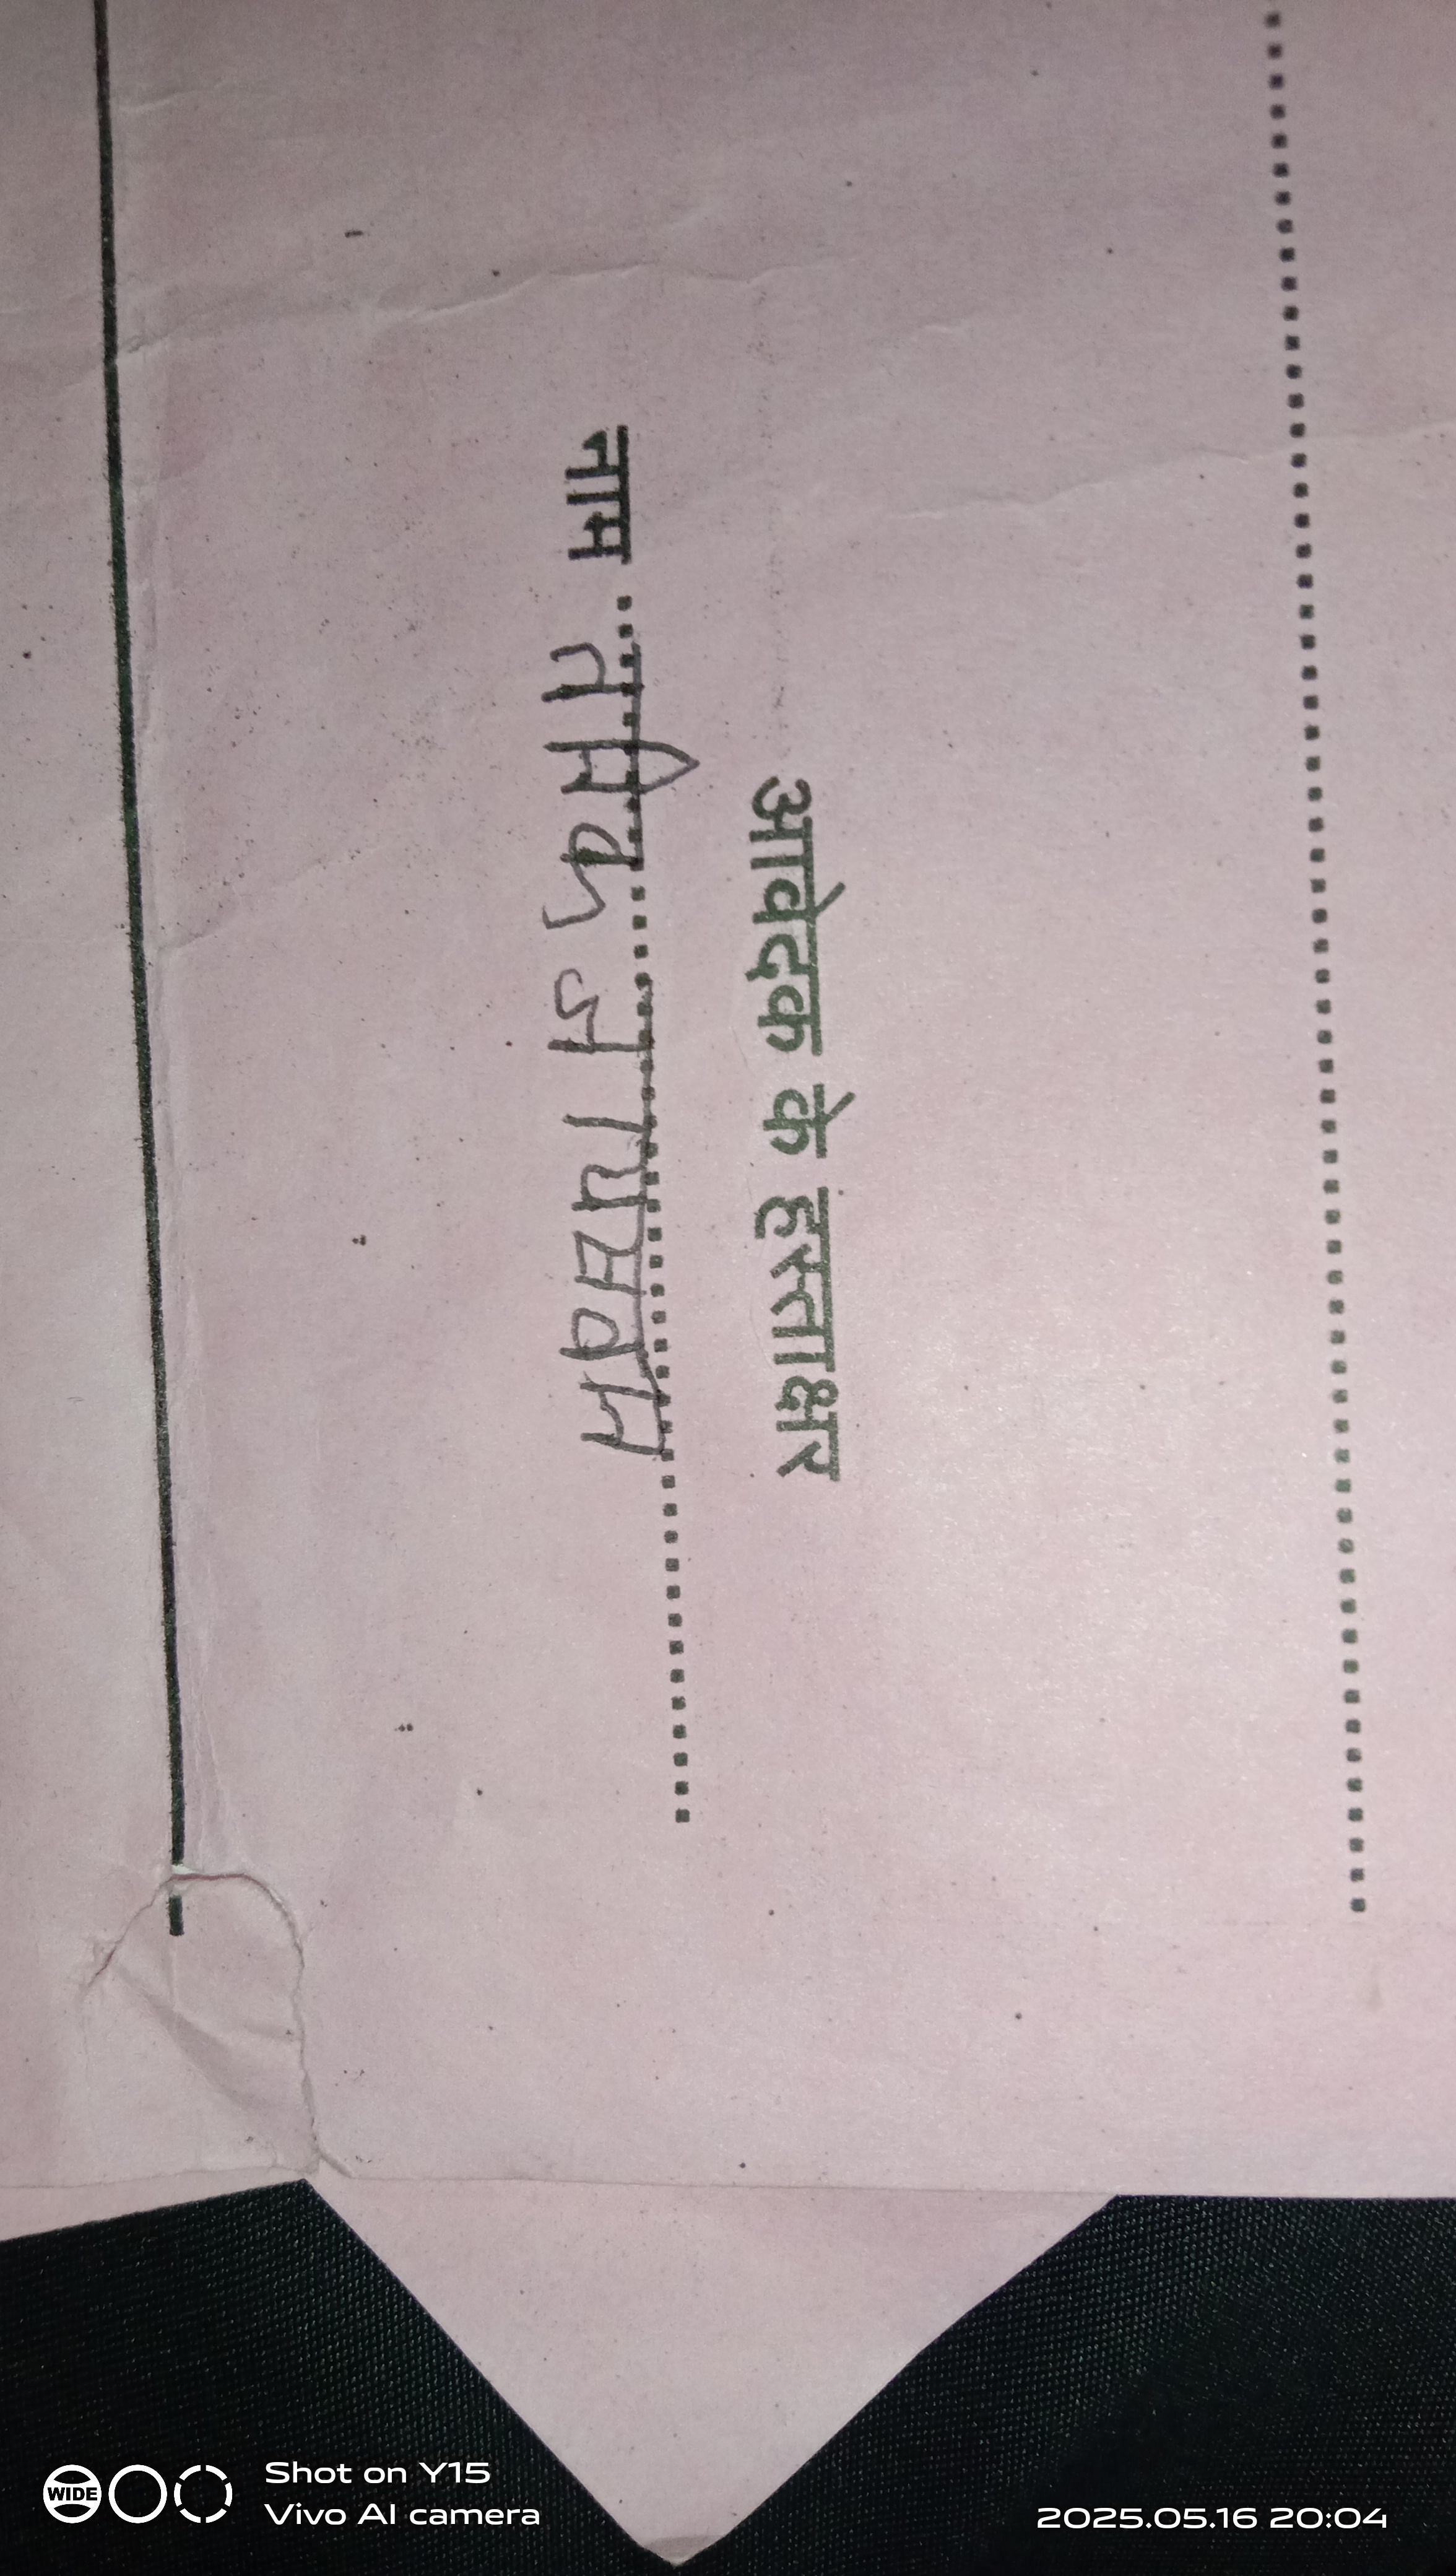 आवेदक के हस्ताक्षर
नाम
WIDE
Shot on Y15
Vivo AI camera
2025.05.16 20:04